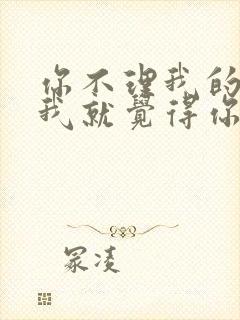 你不理我的
我就覺得你
冢凌